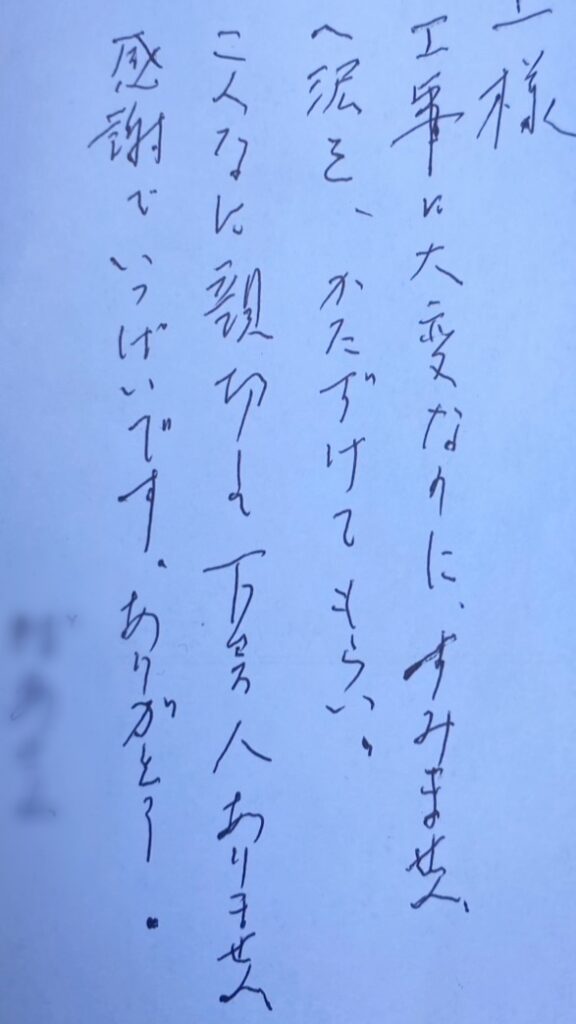 様
工事に大変なのに、すみません、
へ沢を、かたずけてもらい、
こんなに親切な下券人ありません
感謝でいっぱいです。ありがとう。